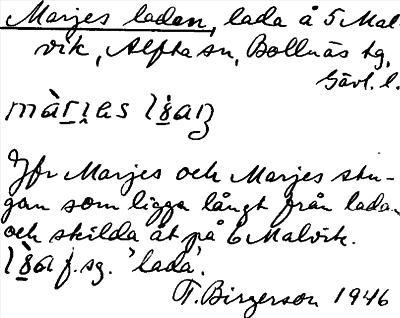 Marjes ladan, lada å 5 Mal-
vik, Alfta sn, Bollnäs tg,
Gävl. l.
Jfr Marjes och Marjes stu-
gan som ligga långt från ladan
och skilda åt på 6 Malvik.
f. sg. 'lada'.
T. Birgerson 1946